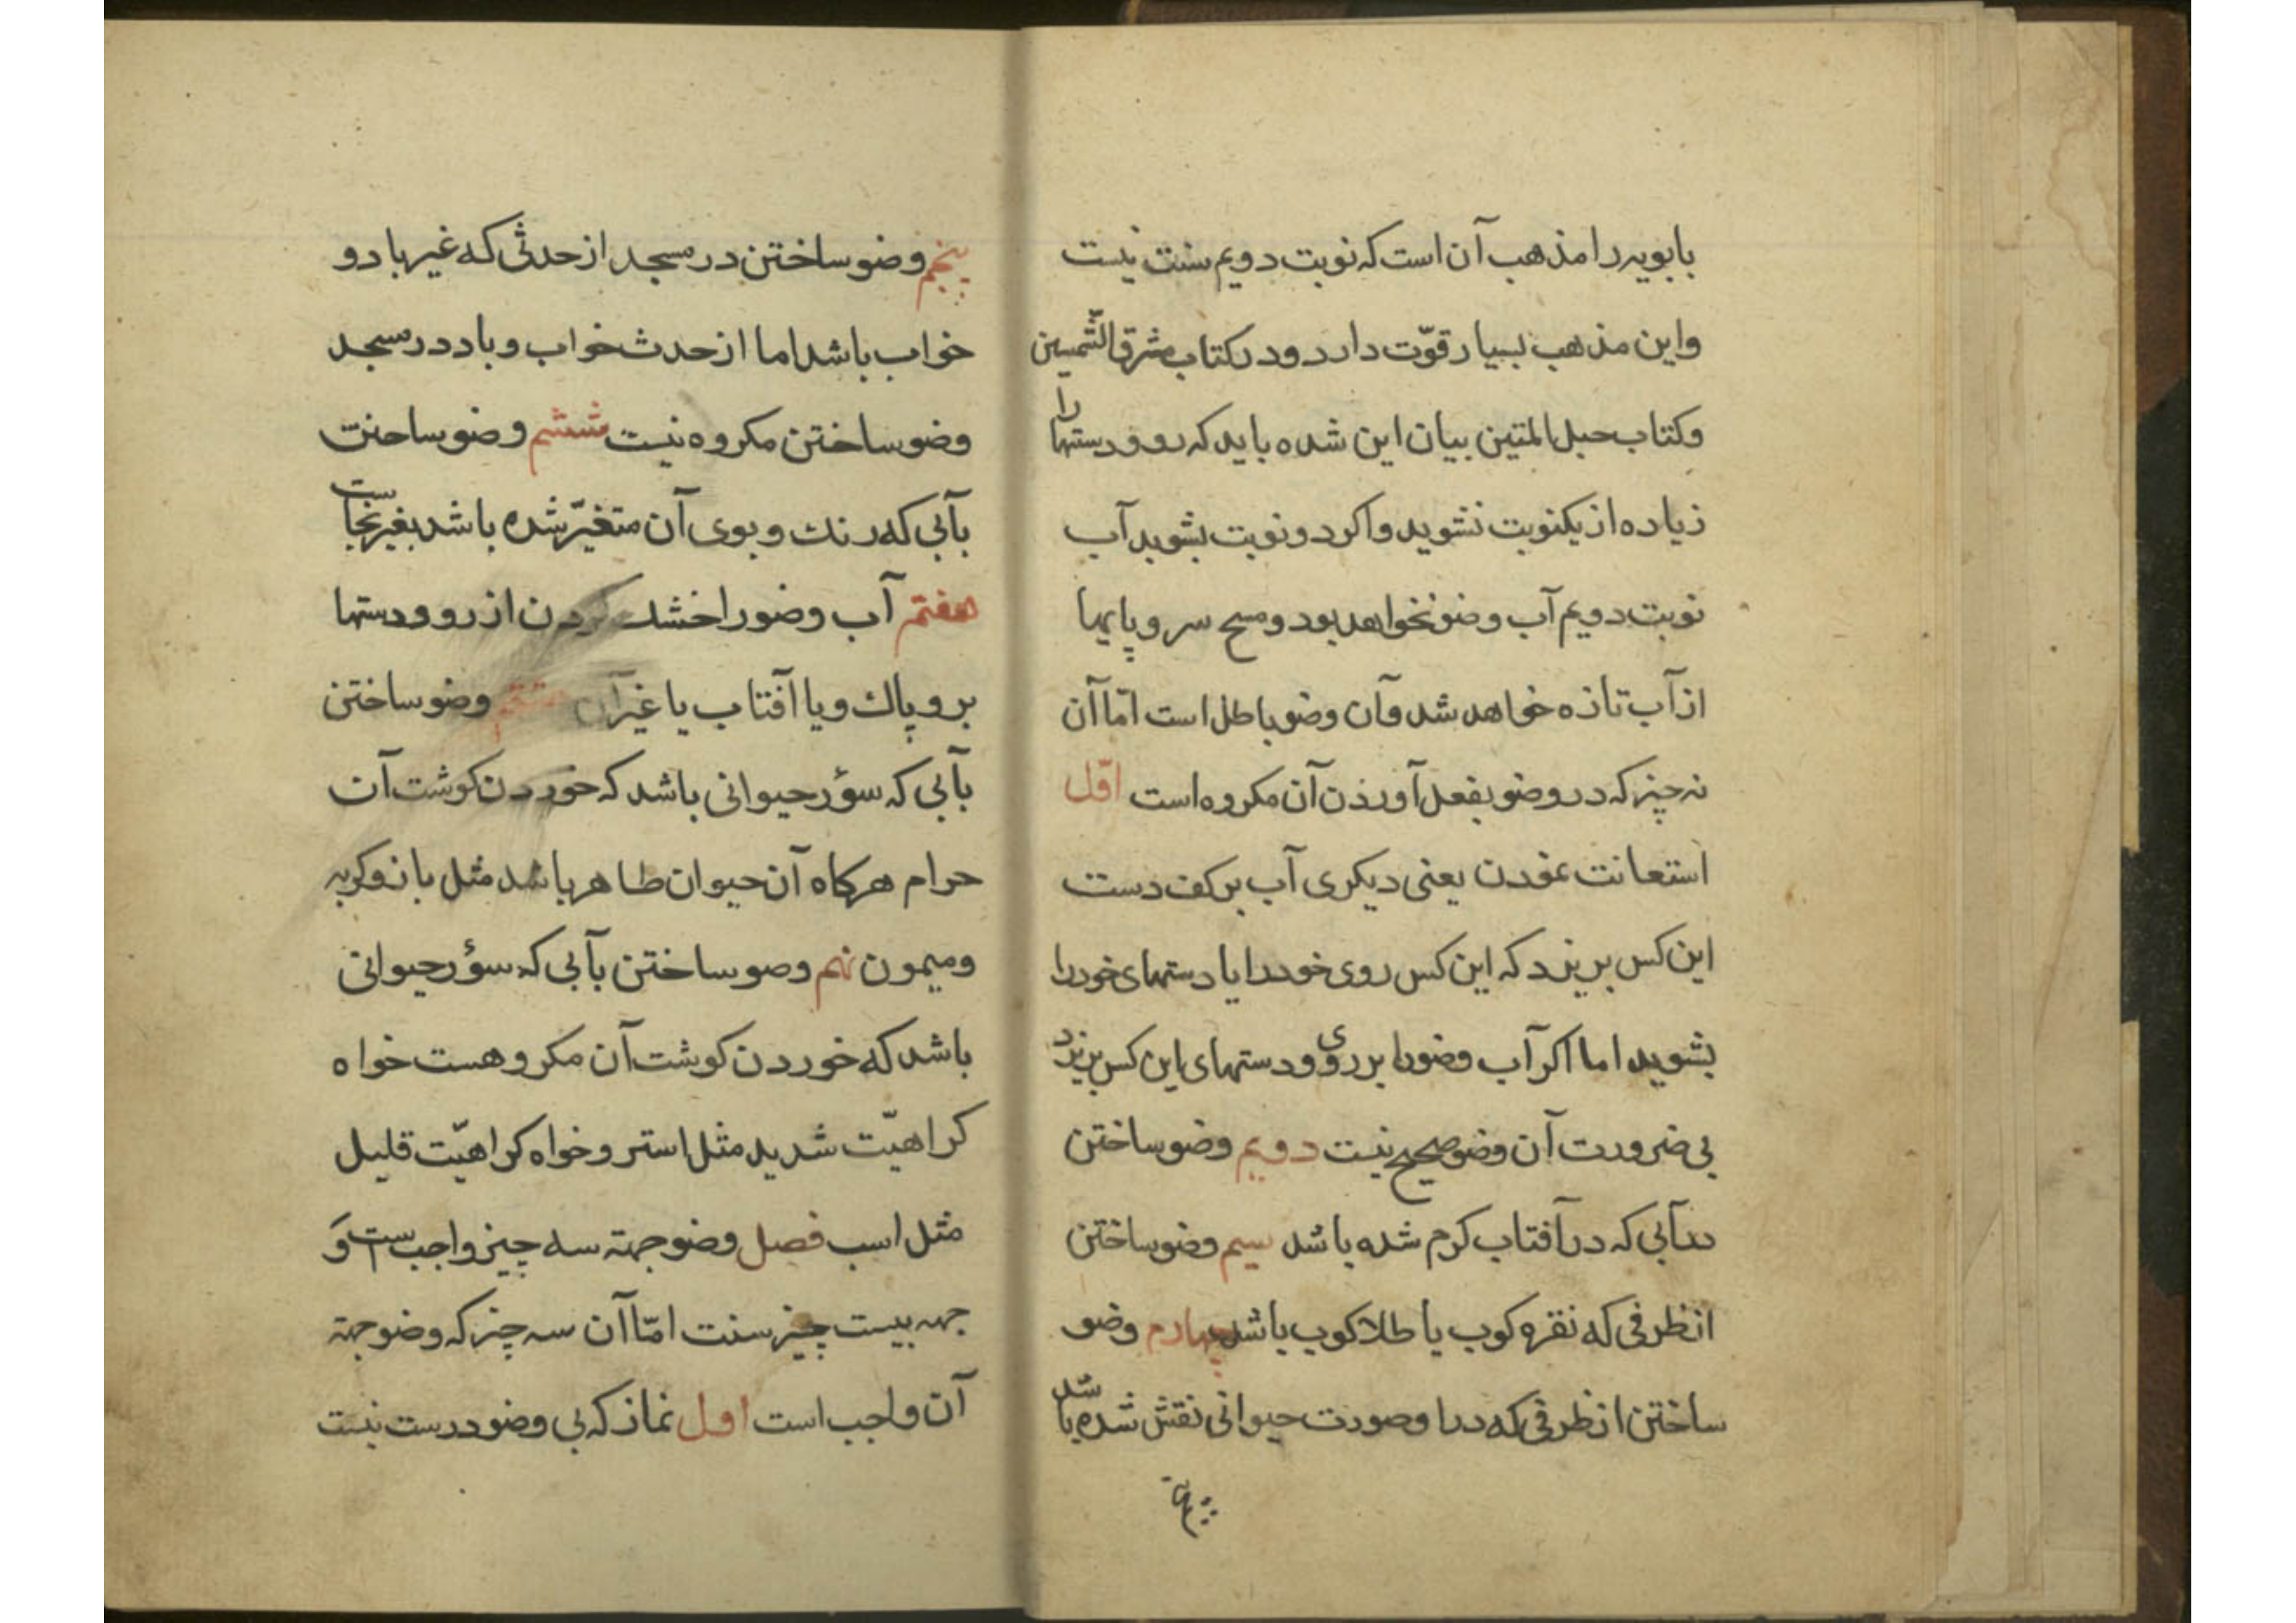 بابویه را مذهب آن است که نوبت دویم سنت نیست
و این مذهب بسیار قوّت دارد و در کتاب مشرق الشّمسین
و کتاب حبل المتین بیان این شده باید که رو و دستها را
زیاده از یکنوبت نشوید و اکر دو نوبت بشوید آب
نوبت دویم آب وضو نخواهد بود و مسح سر و پایها
از آب تازه خواهد شد و آن وضو باطل است امّا آن
نه چیز که در وضو بفعل آوردن آن مکروه است اوّل
استعانت نمودن یعنی دیکری آب بر کف دست
این کس بریزد که این کس روی خود را یا دستهای خود را
بشوید اما اکر آب وضو را بر روی و دستهای این کس بریزد
بی ضرورت آن وضو صحیح نیست دویم وضو ساختن
بآبی که در آفتاب کرم شده باشد سیم وضو ساختن
از ظرفی که نقره کوب یا طلا کوب باشد چهارم وضو
ساختن از ظرفی که در او صورت حیوانی نقش شده باشد
پنجم
پنجم وضو ساختن در مسجد از حدثی که غیر باد و
خواب باشد اما از حدث خواب و باد در مسجد
وضو ساختن مکروه نیست ششم وضو ساختن
بآبی که رنک و بوی آن متغیّر شده باشد بغیر نجاست
هفتم آب وضو را خشک کردن از رو و دستها
برو پاك و یا آفتاب یا غیر آن هشتم وضو ساختن
بآبی که سؤر حیوانی باشد که خوردن کوشت آن
حرام هرکاه آن حیوان طاهر باشد مثل باز و کربه
و میمون نهم وضو ساختن بآبی که سؤر حیوانی
باشد که خوردن کوشت آن مکروهست خواه
کراهیّت شدید مثل استر و خواه کراهیّت قلیل
مثل اسب فصل وضو جهته سه چیز واجب است و
جهه بیست چیز سنت امّا آن سه چیز که وضو جهته
آن واجب است اول نماز که بی وضو درست نیست